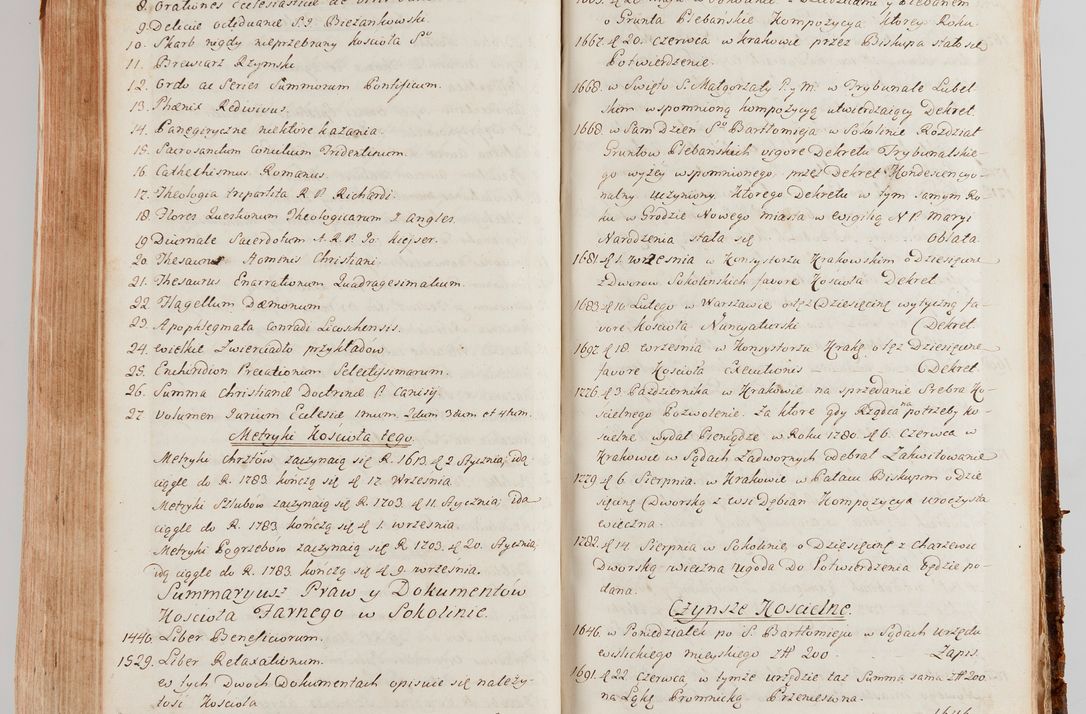 8. Orationes Ecclesiasticae ac
9. Delicie oczidwanie S.J. Bieżankowski.
10. Skarb nigdy nieprzebrany kościoła Sgo
11. Brewiarz Rzymski
12. Ordo ac Series Summorum Pontificum.
13. Phænix Redivivus.
14. Panegiryczne niektore kazania.
15. Sacrosanctum Concilium Tridentinum.
16. Cathethismus Romanus.
17. Theologia tripartita R P Richardi.
18. Flores Quæstionum Theologicarum I Angles.
19 Diurnale Sacerdotum A. R. P. Jo. Kiejser.
20. Thesaurus Hominis Christiani
21. Thesaurus Enarrationum Quadragesimalium.
22. Flagellum Dæmonum
23. Apophtegmata Conradi Licoshensis.
24. wielkie Zwierciadło przykładow
25. Enchiridion Precationum Selectissimarum.
26. Summa Christianæ Doctrinæ P. Canisij
27. Volumen Jurium Eclesiæ 1mum. 2dum 3tium et 4tum.
Metryki Kościoła tego
Metryki Chrztów zaczynaią się R. 1613. d 2 Stycznia, idą
ciągle do R. 1783 kończą się d 17. Września.
Metryki Szlubow zaczynaią się R. 1703. d 11. Stycznia; idą
ciągle do R. 1783. kończą się d 1. września.
Metryki Pogrzebów zaczynaią się R 1703. d 20. Stycznia,
idą ciągle do R. 1783. kończą się d 9. września.
Summaryusz Praw y Dokumentów
Kościoła Farnego w Sokolinie.
1440. Liber Beneficiorum.
1529. Liber Retaxationum.
w tych Dwoch Dokumentach opisuie się należy-
tość Kościoła
o Grunta Plebańskie Kompozycya ktorey Roku
1667. d 20. czerwca w Krakowie przez Biskupa stało się
Potwierdzenie.
1668. w Święto S. Małgorzaty P. y M. w Trybunale Lubel
skim wspomnioną kompozycyą utwierdzaiący Dekret.
1668. w Sam Dzień Sgo Bartłomieja w Sokolinie Rozdział
Gruntow Plebańskich vigore Dekretu Trybunalskie-
go wyżey wspomnionego przez Dekret Kondescencyo-
nalny uczyniony. ktorego Dekretu w tym samym Ro-
ku w Grodzie Nowego miasta w wigilią N P Maryi
Narodzenia stała się Oblata.
1681. d 1. września w Konsystorzu Krakowskim o Dziesięcine
z Dworow Sokolińskich favore Kościoła Dekret
1683. d 10. Lutego w Warszawie o tęż Dziesięcinę wytyczną fa-
vore Kościoła Nuncyaturski Dekret.
1697. d 18. września w Konsystorzu Krakĝ. o tęż Dziesięcine
favore Kościoła executionis Dekret
1776. d 3. Października w Krakowie na sprzedanie Srebra Ko-
ścielnego Pozwolenie. za ktore gdy Rządca na potrzeby ko-
scielne wydał Pieniądze w Roku 1780. d 6. Czerwca w
Krakowie w Sądach Zadwornych odebrał Zakwitowanie
1779. d 6. Sierpnia. w Krakowie w Pałacu Biskupim o Dzie
sięcinę Dworską z wsi Dębian Kompozycya uroczysta
wieczna.
1782. d 14. Sierpnia w Sokolinie, o Dziesięcinę z Charzewic
Dworską wieczna ugoda Do Potwierdzenia będzie po-
dana.
Czynsze Kościelne.
1646. w Poniedziałek po S. Bartłomieju w Sądach urzędu
wiślickiego mieyskiego zł# 200 Zapis
1691. d 22 Czerwca w tymże urzędzie taż Summa sama zł# 200
na Łąkę Promnicką Przeniesiona.